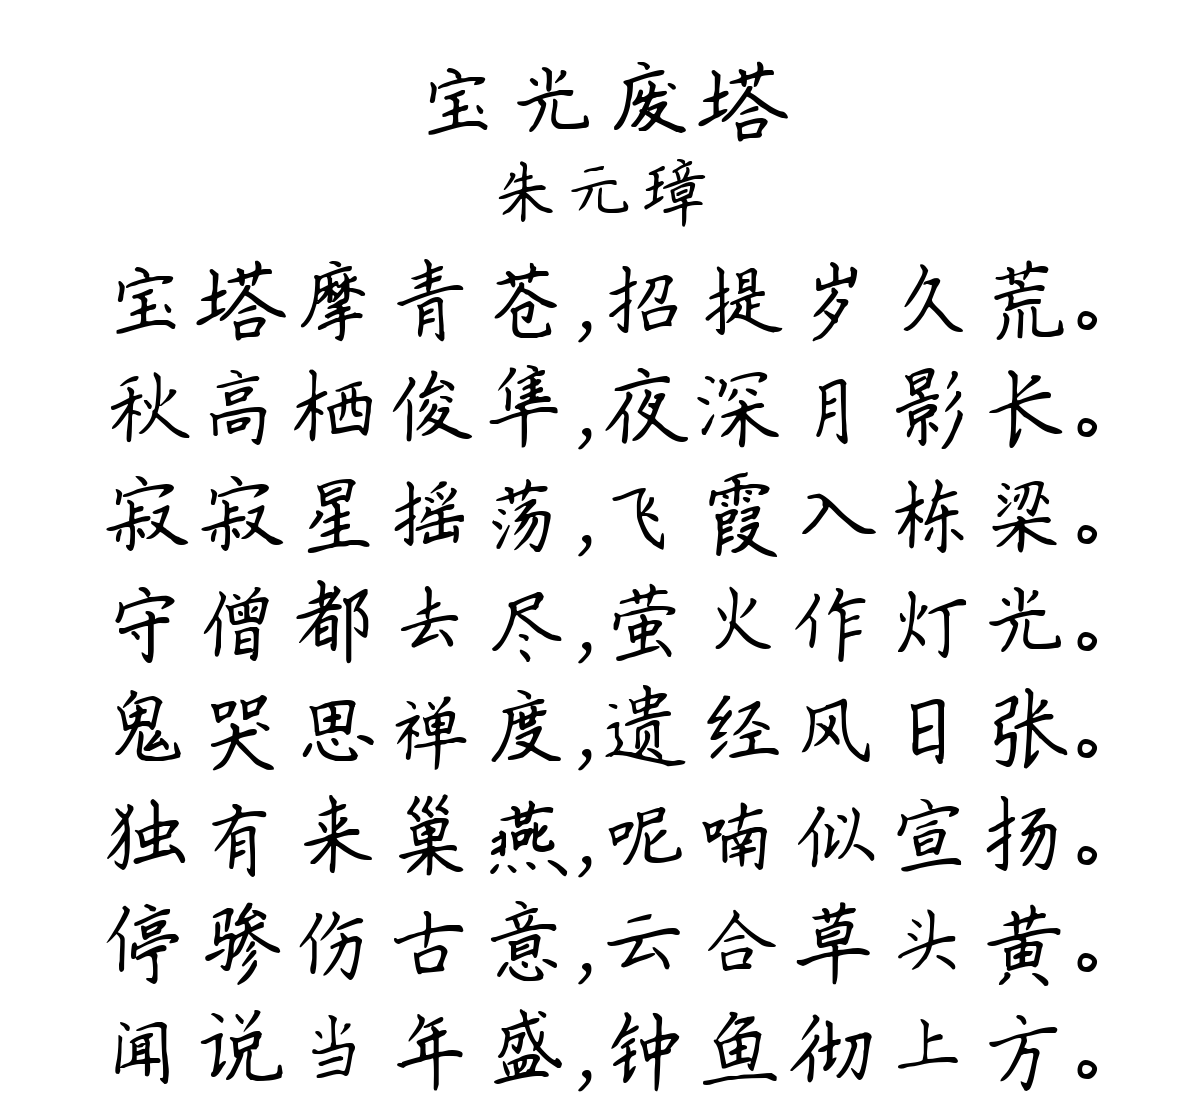 宝光废塔
朱元璋
宝塔摩青苍,招提岁久荒。
秋高栖俊隼,夜深月影长。
寂寂星摇荡,飞霞入栋梁。
守僧都去尽,萤火作灯光。
鬼哭思禅度,遗经风日张。
独有来巢燕,呢喃似宣扬。
停骖伤古意,云合草头黄。
闻说当年盛,钟鱼彻上方。